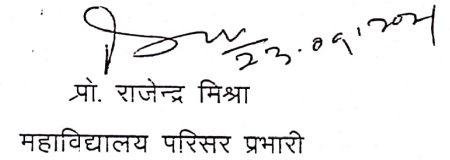 23.09.2021
प्रो. राजेन्द्र मिश्रा
महाविद्यालय परिसर प्रभारी